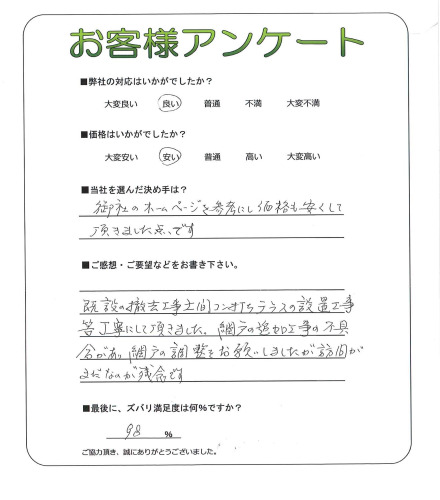 お客様アンケート
■弊社の対応はいかがでしたか?
大変良い 良い 普通 不満 大変不満
■価格はいかがでしたか?
大変安い 安い 普通 高い 大変高い
■当社を選んだ決め手は?
御社のホームページを参考にし価格も安くして
頂きました点、です
■ご感想・ご要望などをお書き下さい。
既設の撤去工事土間コン打ちテラスの設置工事
等丁寧にして頂きました、網戸の追加工事の不具
合があり網戸の調整をお願いしましたが訪問が
まだなのが残念です
■最後に、ズバリ満足度は何%ですか?
98 %
ご協力頂き、誠にありがとうございました。